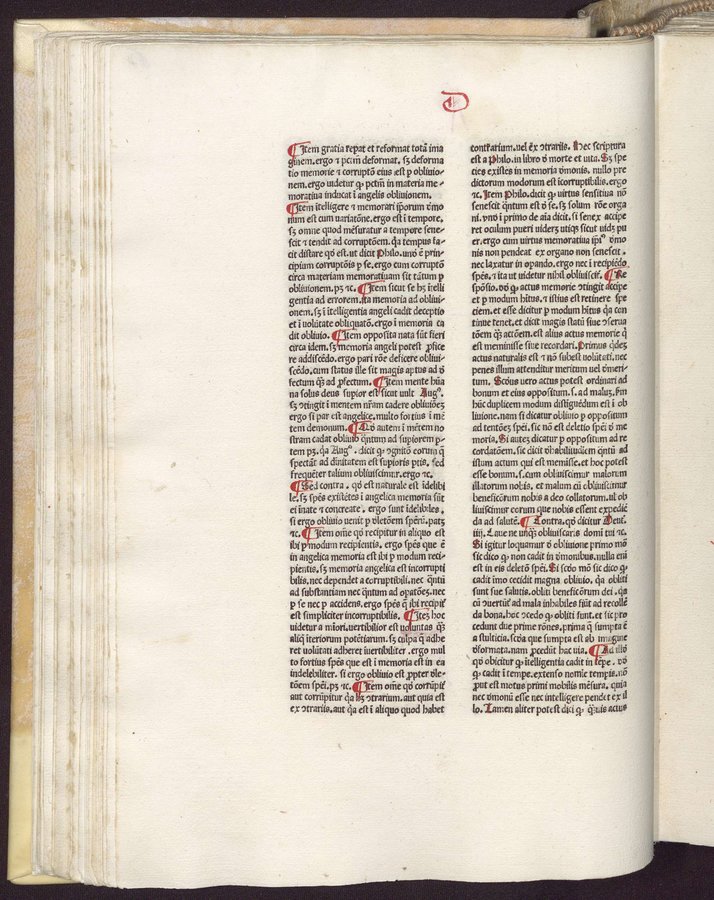 D
Item gratia repat et reformat totã ima
ginem. ergo ⁊ pctm̃ deformat. sꝫ deforma
tio memorie ⁊ corruptõ eius est ꝑ obliuio-
nem. ergo uidetur ꝙ pctm̃ in materia me-
morativa inducat ĩ angelis obliuionem.
Item itelligere ⁊ memorari ip̃orum
est cum uariatõne. ergo est ĩ tempore.
sꝫ omne quod mẽsuratur a tempore sene-
scit ⁊ tendit ad corruptõem. q̃a tempus fa-
cit distare qð est. ut dicit Philo. uno ẽ prin-
cipium corruptõis ꝑ se. ergo cum corruptõ
circa materiam memoratiuam sit tãtum ꝑ
obliuionem. pꝫ ⁊c. Item sicut se hꝫ ĩtelli
gentia ad errorem. ita memoria ad obliui-
onem. sꝫ ĩ itelligentia angeli cadit deceptio
et ĩ uolũtate obliquatõ. ergo ĩ memoria ca
dit obliuio. Item opposita nata sũt fieri
circa idem. sꝫ memoria angeli potest ꝓfice
re addiscẽdo. ergo pari rõne deficere obliui-
scẽdo. cum status ille sit magis aptus ad
fectum q̃ꝫ ad ꝓfectum. Item mente hũa
na solus deus supior est sicut uult Augꝰ.
sꝫ ↄtingit ĩ mentem nr̃am cadere obliuiõeꝫ
ergo si par est angelice. multo fortius ĩ mẽ
tem demonum. Qð autem ĩ mẽtem no
stram cadat obliuio q̃ntum ad supiorem ꝑ-
tem pꝫ. q̃a Augꝰ. dicit ꝙ ↄgnitõ eorum q̃
spectãt ad diuinitatem est supioris ꝑtis. sed
frequẽter talium obliuiscimur. ergo ⁊c.
Sed contra. qð est naturale est idelibi
le. sꝫ spẽs existẽtes ĩ angelica memoria sũt
ei ĩnate ⁊ concreate. ergo sunt idelibiles.
si ergo obliuio uenit ꝑ deletõem spẽrũ. patꝫ
⁊c. Item om̃e qð recipitur in aliquo est
ibi ꝑ modum recipientis. ergo spẽs que ẽ
in angelica memoria est ibi ꝑ modum reci-
pientis. sꝫ memoria angelica est incorrupti
bilis. nec dependet a corruptibili. nec q̃ntũ
ad substantiam nec q̃ntum ad opatõeꝫ. nec
ꝑ se nec ꝑ accidens. ergo spẽs q̃ ibi recipit̃
est simpliciter incorruptibilis. Iteꝫ hoc
videtur a miori. uertibilior est uoluntas q̃ꝫ
aliq̃ iteriorum potẽtiarum. sꝫ culpa q̃ adhe
ret uoluntati adheret iuertibiliter. ergo mul
to fortius spẽs que est ĩ memoria est in ea
indelebiliter. si ergo obliuio est ꝓpter dele-
tõem spẽi. pꝫ ⁊c. Item om̃e qð corrũpit̃
aut corrũpitur q̃a hꝫ ↄtrarium. aut quia est
ex ↄtrariis. aut q̃a est ĩ aliquo quod habet
contrarium. uel ẽx ↄtrariis. Nec scriptura
est a Philo. in libro đ morte et uita. Sꝫ spe
cies existẽs in memoria đmonis. nullo pre
dictorum modorum est icorruptibilis. ergo
⁊c. Item Philo. dicit ꝙ uirtus sensitiua nõ
senescit q̃ntum est đ se. sꝫ solum rõne orga
ni. vnđ ĩ primo de aĩa dicit. si senex accipe
ret oculum pueri uideꝫ utiqꝫ sicut uidꝫ pu
er. ergo cum uirtus memoratiua ip̃iꝰ đmo
nis non pendeat ex organo non senescit.
nec laxatur in opando. ergo nec ĩ recipiẽdo
spẽs. ⁊ ita ut uidetur nihil obliuiscit̃. Re
spõsio. đđ ꝙ actus memorie ↄtingit accipe
et ꝑ modum hitus. ⁊ istius est retinere spe
ciem. et esse dicitur ꝑ modum hitus q̃a con
tinue tenet. et dicit magis statũ siue ↄserua
tõem q̃ꝫ actõem. est alius actus memorie q̃
est meminisse siue recordari. Primus qđeꝫ
actus naturalis est ⁊ nõ subest uolũtati. nec
penes illum attenditur meritum uel đmeri-
tum. Scđus uero actus potest ordinari ad
bonum et eius oppositum. s. ad malum. scđm
huc duplicem modum distiguẽdum est ĩ ob
liuione. nam si dicatur obliuio ꝑ oppositum
ad tentõeꝫ spẽi. sic nõ est deletio spẽi đ me
moria. Si auteꝫ dicatur ꝑ oppositum ad re
cordatõem. sic dicit đhabilitudiẽm q̃ntũ ad
istum actum qui est meminisse. et hoc potest
esse bonum. s. cum obliuiscimur malorum
illatorum nobis. et malum cũ obliuiscimur
beneficiorum nobis a deo collatorum. ul̃ ob
liuiscimur eorum que nobis essent expediẽ
da ad salutẽ. Contra. qð dicitur Deut̃.
iiij. Caue ne unq̃ꝫ obliuiscaris domi tui ⁊c.
Si igitur loquamur đ obliuione primo mõ
sic dico ꝙ non cadit in đmonibus. nulla eni
est in eis deletõ spẽi. Si scđo mõ sic dico ꝙ
cadit imo cecidit magna obliuio. q̃a obliti
sunt sue salutis. obliti beneficiorum dei. q̃a
cũ đuertũt̃ ad mala inhabiles fiũt ad recolẽ
da bona. hcedo ꝙ obliti sunt. et sic pro
cedunt due prime rõnes. prima q̃ sumpta ẽ
a stulticia. scđa que sumpta est ab imagine
đformata. nam ꝓcedũt hac uia. Ad illđ
qð obicitur ꝙ itelligentia cadit in tẽpe. đđ
ꝙ cadit ĩ tempe. extenso nomie tempis. nõ
ꝓut est motus primi mobilis mẽsura. quia
nec đmonũ esse nec intelligere pendet ex il
lo. Tamen aliter potest dici ꝙ q̃uis actus